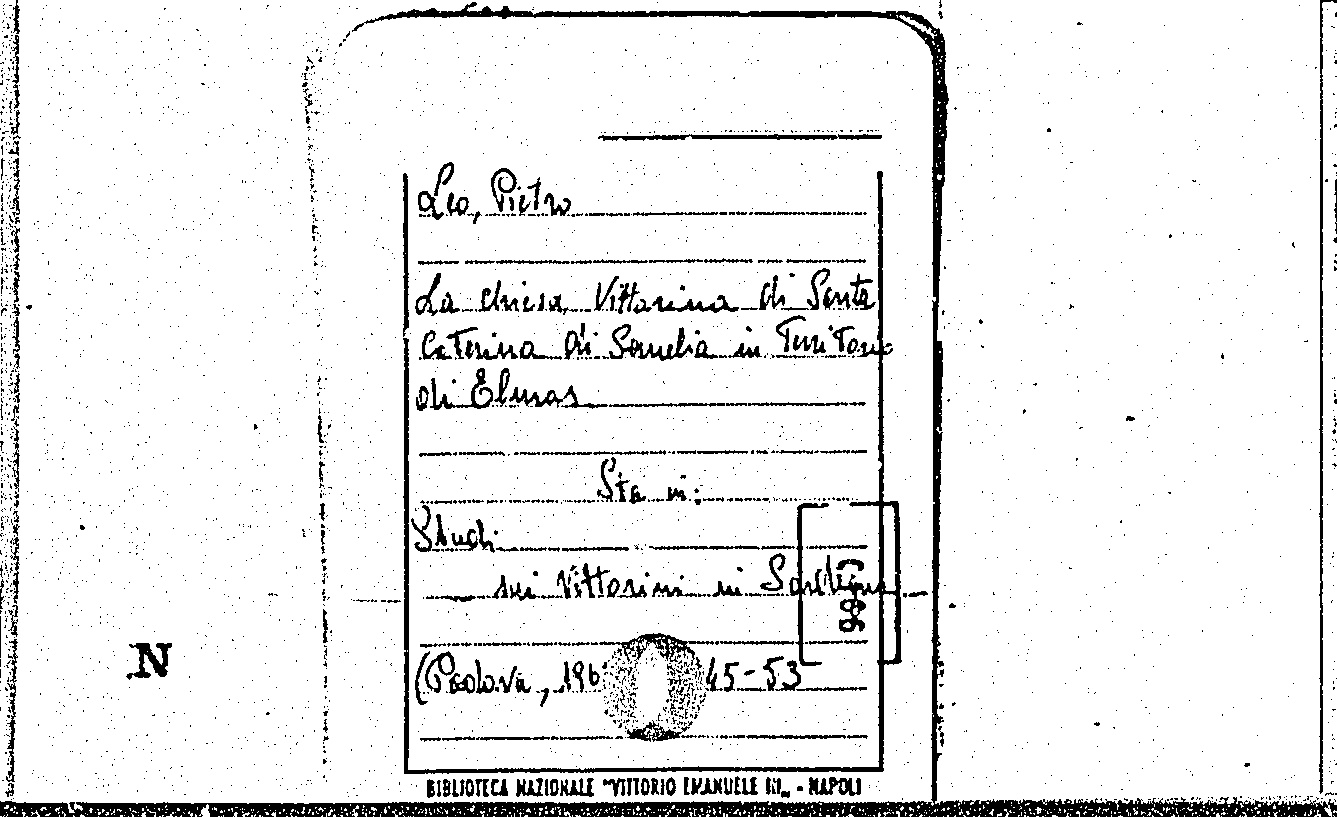 Leo, Pietro
La chiesa Vittorina di Santa
Caterina di Semelia in Territorio
di Elmas
Sta in:
Studi
sui Vittorini in Sardegna
(Padova, 196 45-53
N
BIBLIOTECA NAZIONALE "VITTORIO EMANUELE III„ - NAPOLI